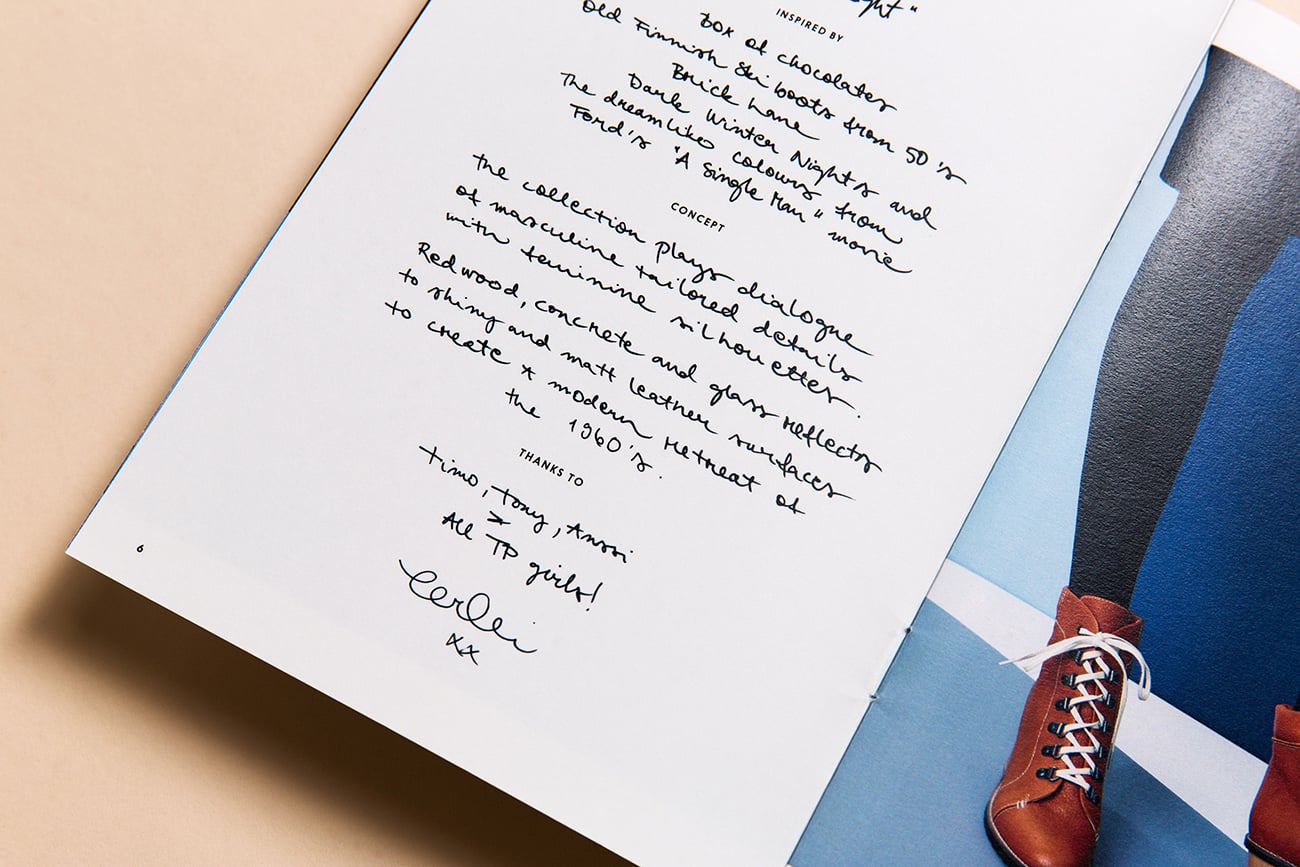 INSPIRED BY
Box of chocolates
Old Finnish Ski boots from 50's
Brick Lane
Dark Winter Nights and
The dreamlike colours from
Ford's "A single Man" movie
CONCEPT
The collection plays dialogue
of masculine tailored details
with feminine silhouettes.
Redwood, concrete and glass reflects
to shiny and matt leather surfaces
to create a modern retreat of
the 1960's.
THANKS TO
Timo, Tony, Anssi
All TP girls!
xx
6